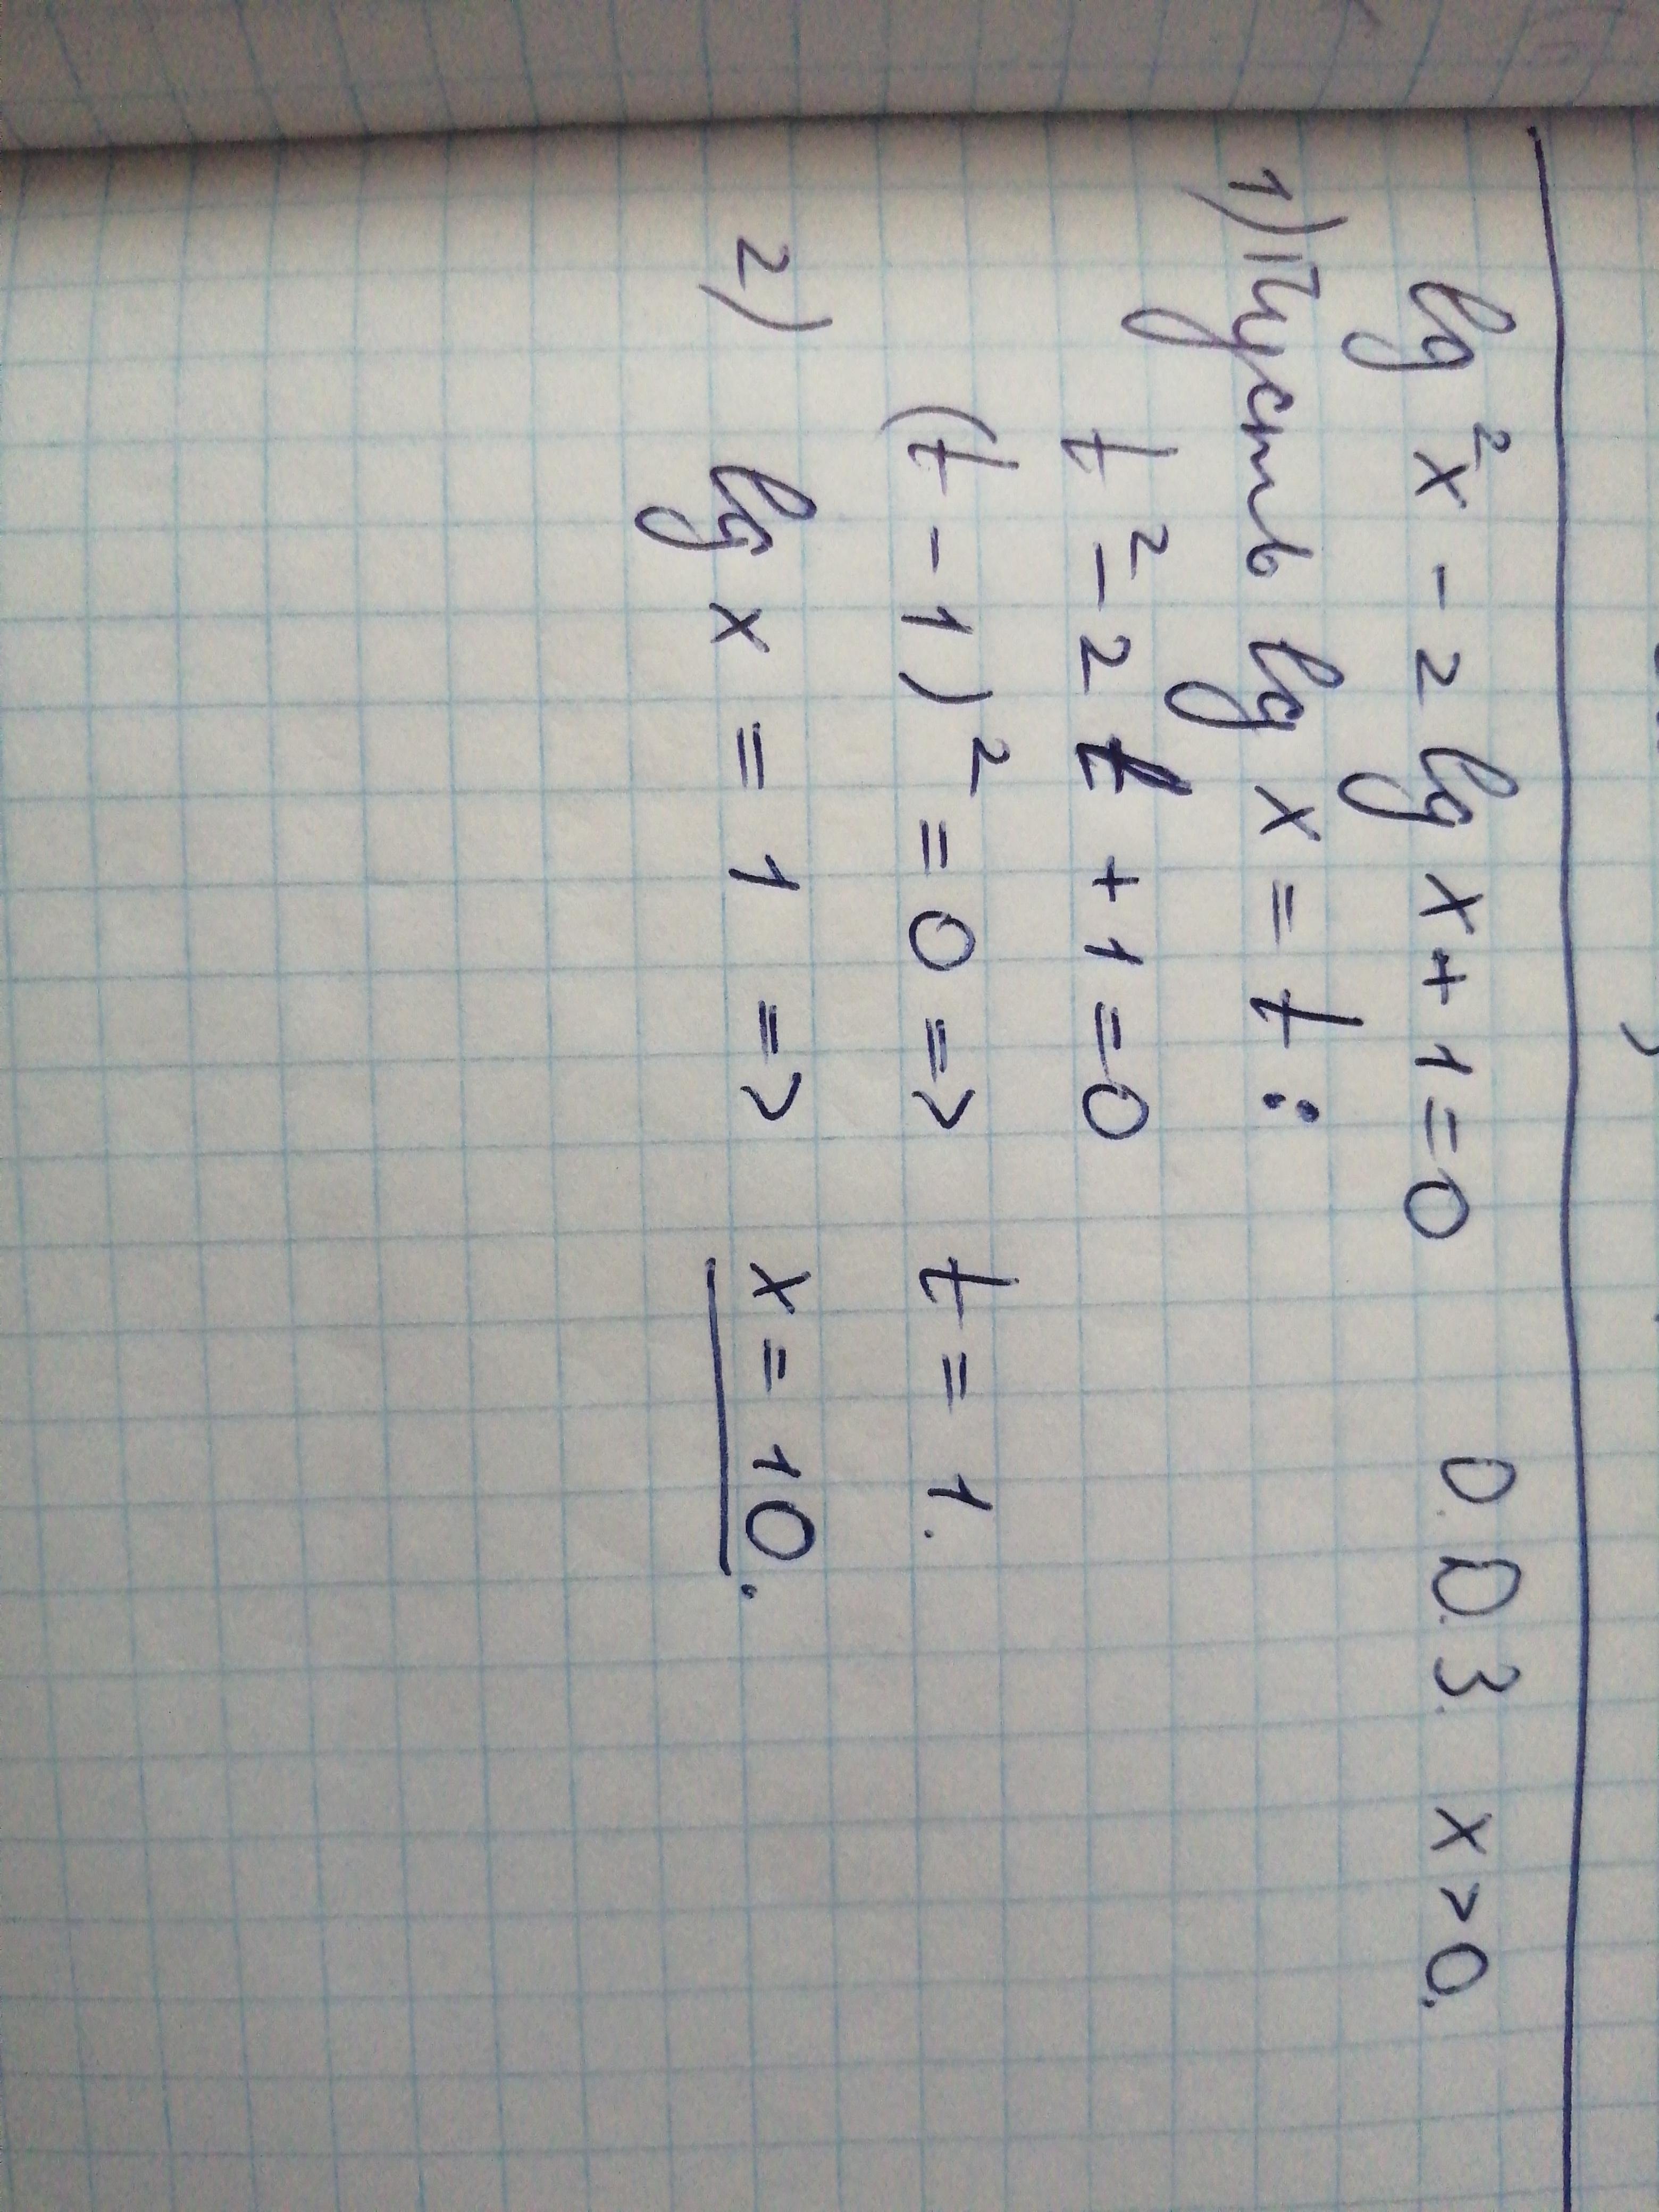 lg²x - 2 lg x + 1 = 0   О.О.З. x > 0.
1) Пусть lg x = t :
t² - 2 t + 1 = 0
(t - 1)² = 0 => t = 1.
2) lg x = 1 => x = 10.